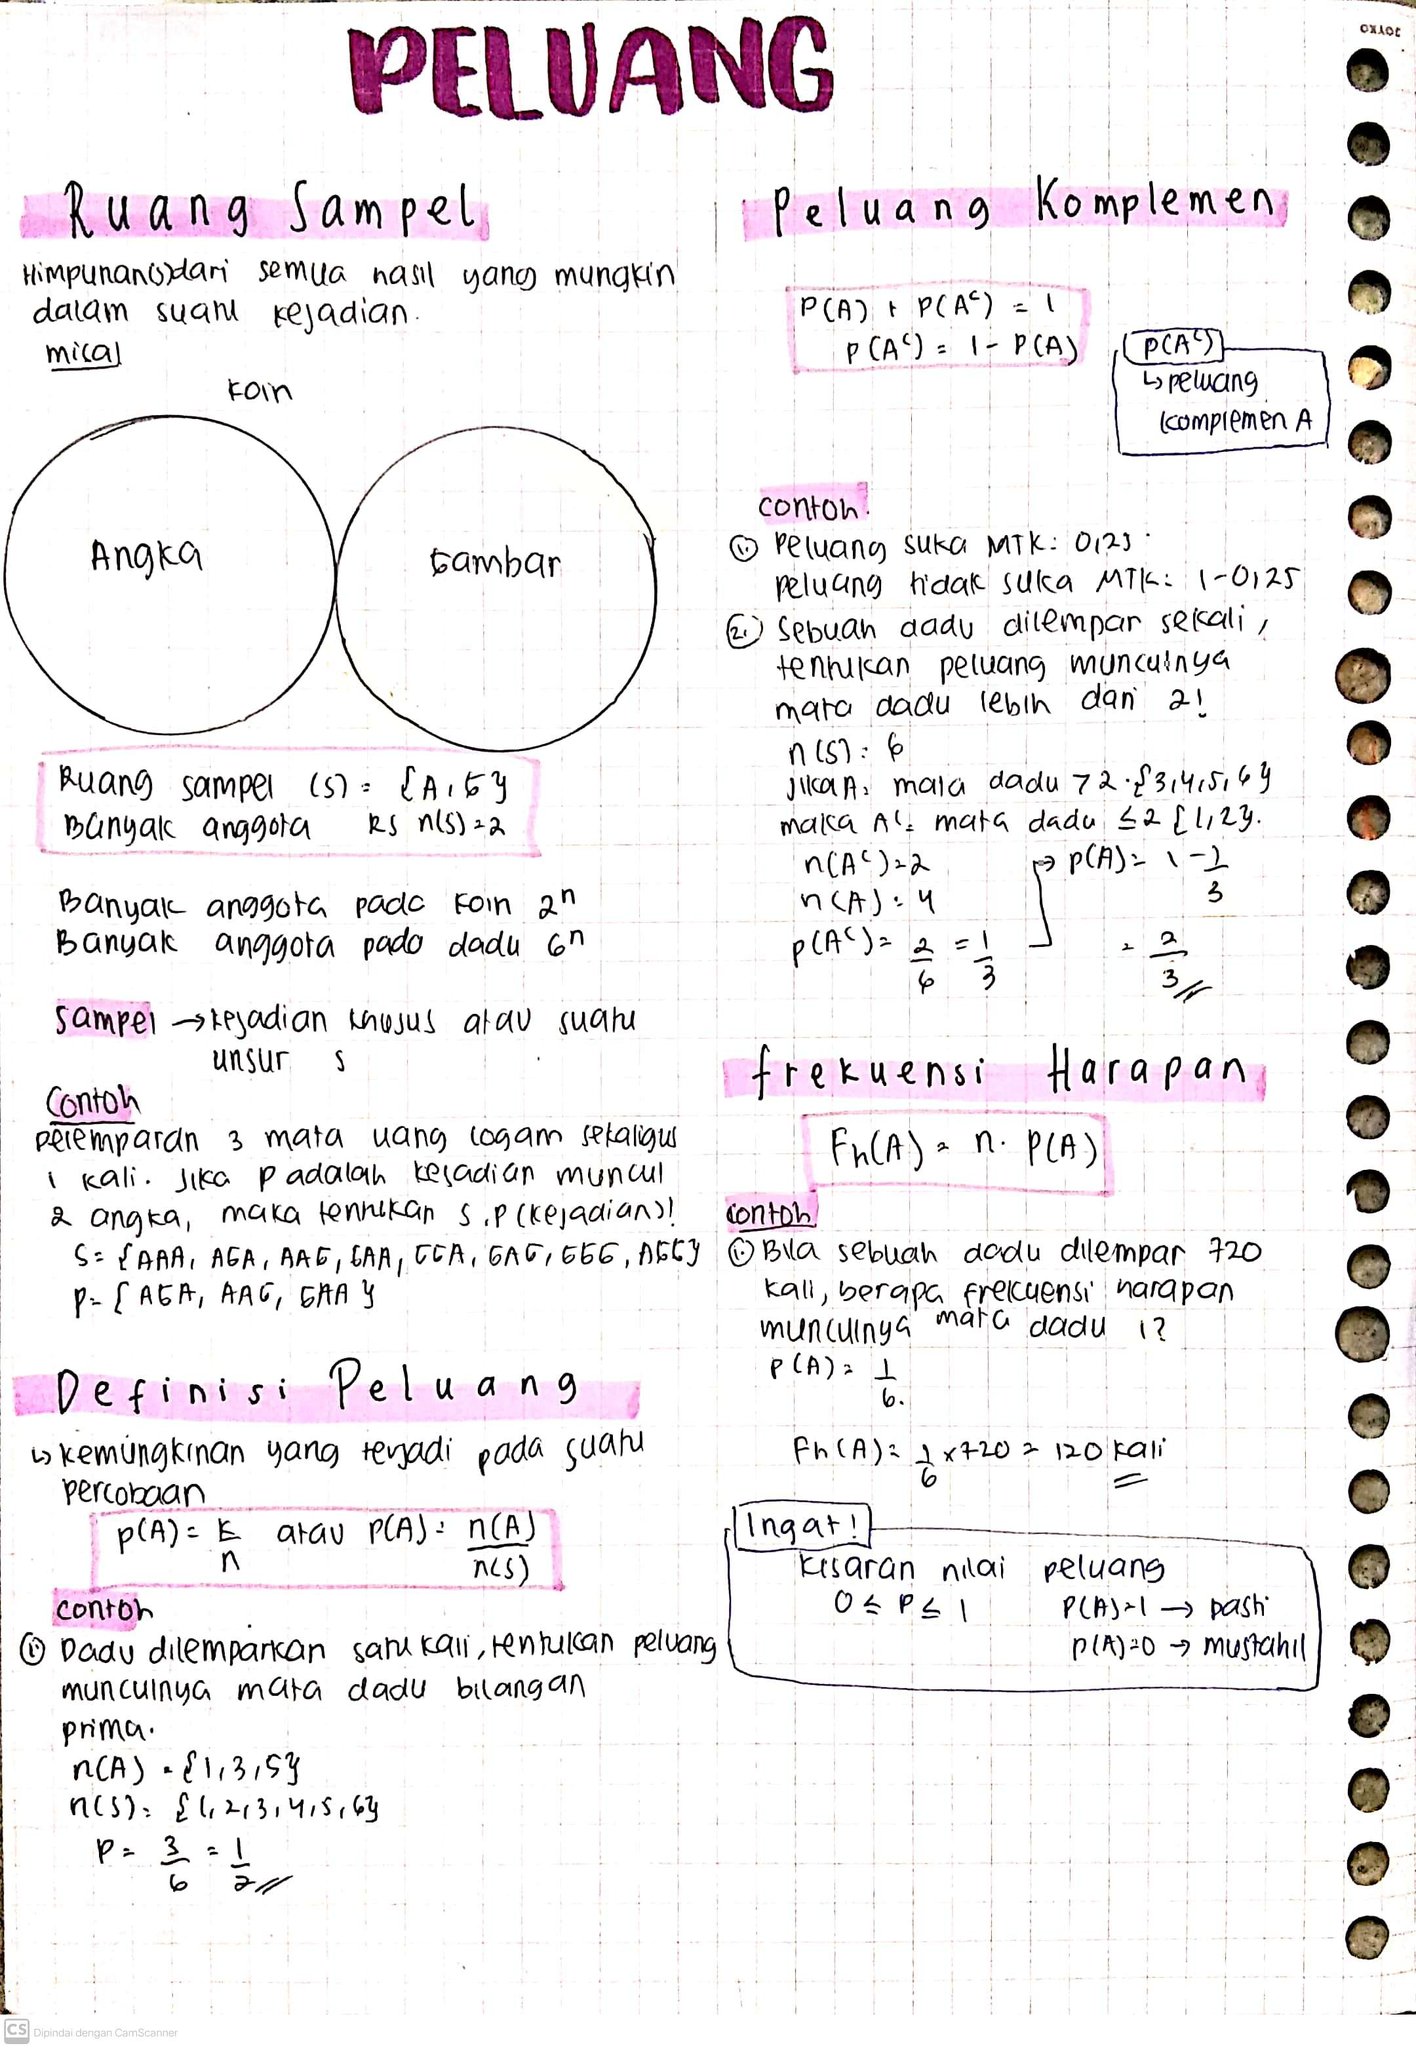 PELUANG
JOYKO
Ruang Sampel
Himpunan(s)dari semua hasil yang mungkin
dalam suatu kejadian.
misal
koin
Angka
Gambar
Ruang sampel (S) = {A, G}
Banyak anggota RS n(S)=2
Banyak anggota pada koin 2ⁿ
Banyak anggota pada dadu 6ⁿ
Sampel → kejadian khusus atau suatu
unsur S
Contoh
pelemparan 3 mata uang logam sekaligus
1 kali. Jika P adalah kejadian muncul
2 angka, maka tentukan S, P (kejadian)!
S = {AAA, AGA, AAG, GAA, GGA, GAG, GGG, AGG}
P = {AGA, AAG, GAA}
Definisi Peluang
↳ kemungkinan yang terjadi pada suatu
percobaan
P(A) = k/n atau P(A) = n(A)/n(S)
contoh
1. Dadu dilemparkan satu kali, tentukan peluang
munculnya mata dadu bilangan
prima.
n(A) = {1,3,5}
n(S) = {1,2,3,4,5,6}
P = 3/6 = 1/2
Peluang Komplemen
P(A) + P(Aᶜ) = 1
P(Aᶜ) = 1 - P(A)
P(Aᶜ)
↳ peluang
komplemen A
contoh.
1. Peluang suka MTK: 0,25.
peluang tidak suka MTK: 1-0,25
2. Sebuah dadu dilempar sekali,
tentukan peluang munculnya
mata dadu lebih dari 2!
n(S) = 6
Jika A = mata dadu > 2 = {3,4,5,6}
maka Aᶜ = mata dadu ≤2 {1,2}.
n(Aᶜ) = 2
n(A) = 4
P(Aᶜ) = 2/6 = 1/3
→ P(A) = 1 - 1/3
= 2/3
frekuensi Harapan
Fh(A) = n. P(A)
contoh
1. Bila sebuah dadu dilempar 720
kali, berapa frekuensi harapan
munculnya mata dadu 1?
P(A) = 1/6.
Fh(A) = 1/6 x 720 = 120 kali
Ingat!
kisaran nilai peluang
0 ≤ P ≤ 1 P(A)=1 → pasti
P(A)=0 → mustahil
CS Dipindai dengan CamScanner